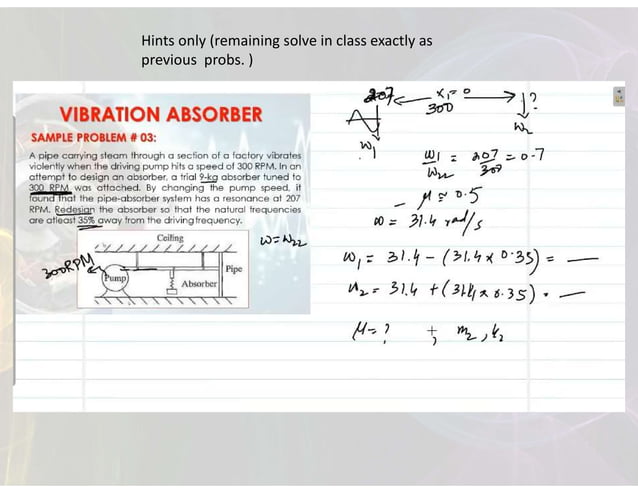 Hints only (remaining solve in class exactly as
previous probs. )
VIBRATION ABSORBER
SAMPLE PROBLEM # 03:
A pipe carrying steam through a section of a factory vibrates
violently when the driving pump hits a speed of 300 RPM. In an
attempt to design an absorber, a trial 9-kg absorber tuned to
300 RPM was attached. By changing the pump speed, it
found that the pipe-absorber system has a resonance at 207
RPM. Redesign the absorber so that the natural frequencies
are atleast 35% away from the driving frequency.
Ceiling
ω=ω22
300RPM
Pump
Absorber
Pipe
207
x1=0
300
?
ω1
ω2
ω1/ω22 = 207/300 = 0.7
- μ ≈ 0.5
ω = 31.4 rad/s
ω1 = 31.4 - (31.4 x 0.35) = —
ω2 = 31.4 + (31.4 x 0.35) = —
μ = ? ; m2, k2